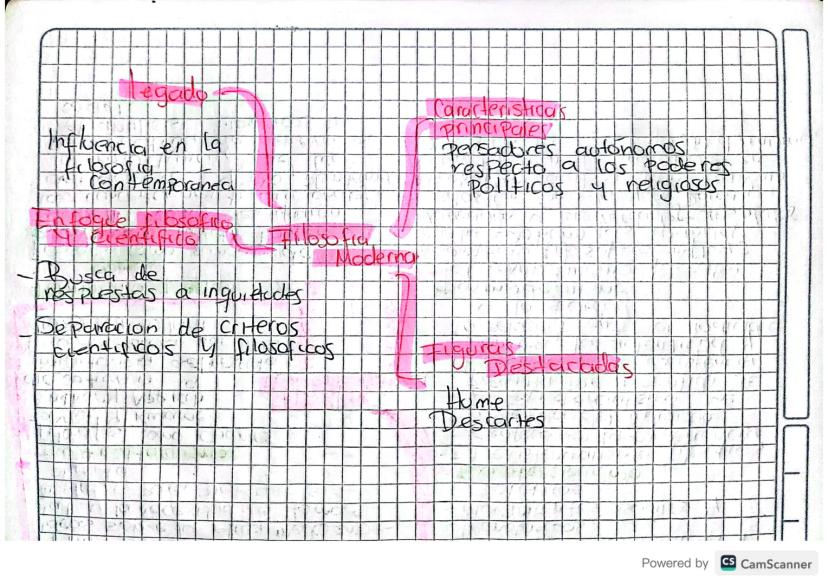 Legado
Influencia en la
filosofia
contemporanea
Enfoque filosofico
Y cientifico
- Busca de
respuestas a inquietudes
- Separacion de criteros
cientificos y filosoficos
Filosofia
Moderna
Caracteristicas
principales
pensadores autónomos
respecto a los poderes
políticos y religiosos
Figuras
Destacadas
Hume
Descartes
Powered by CS CamScanner